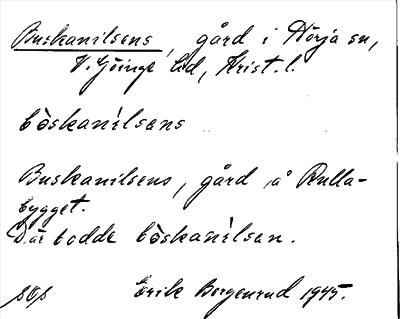 Buskanilsens, gård i Hörja sn,
V. Göinge hd, Krist. l.
bòskanílsens
Buskanilsens, gård å Rulla-
bygget.
Där bodde bòskanílsen.
Erik Borgenrud 1945.